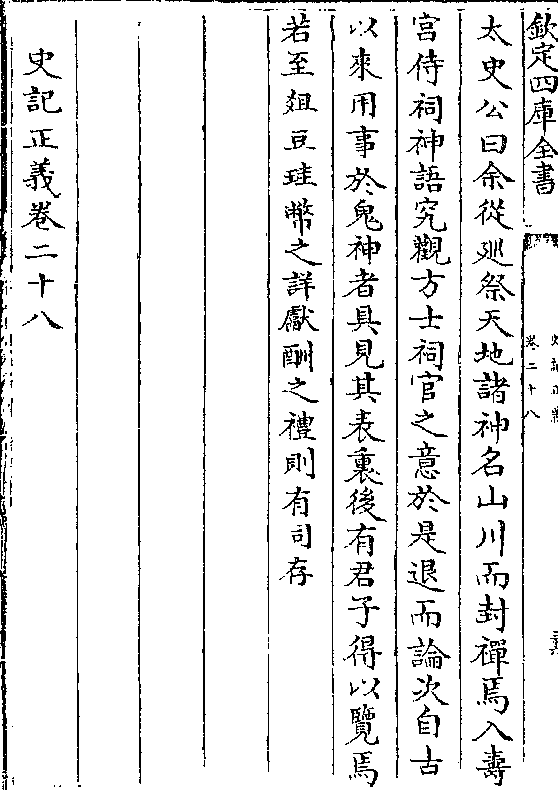 欽定四庫全書
史記正義
卷二十八
太史公曰余從廵祭天地諸神名山川而封禪焉入壽
宮侍祠神語究觀方士祠官之意於是退而論次自古
以來用事於鬼神者具見其表裏後有君子得以覽焉
若至爼豆珪幣之詳獻酬之禮則有司存
史記正義卷二十八